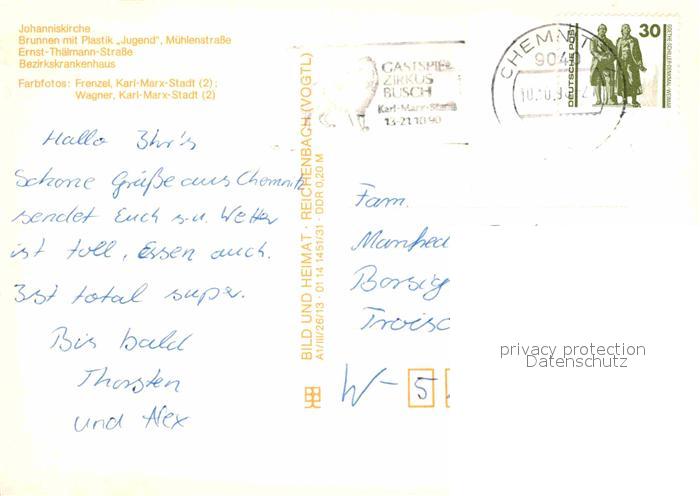 Johanniskirche
Brunnen mit Plastik „Jugend", Mühlenstraße
Ernst-Thälmann-Straße
Bezirkskrankenhaus
Farbfotos: Frenzel, Karl-Marx-Stadt (2);
Wagner, Karl-Marx-Stadt (2)
Hallo Ihr's
Schöne Grüße aus Chemnitz
sendet Euch s.u. Wetter
ist toll, Essen auch.
Ist total super.
Bis bald
Thorsten
und Alex
BILD UND HEIMAT · REICHENBACH (VOGTL)
A1/III/26/13 · 01 14 1451/31 · DDR 0,20 M
GASTSPIEL
ZIRKUS
BUSCH
Karl-Marx-Stadt
13-21.10.90
CHEMNITZ
9040
DEUTSCHE POST
30
GOETHE-SCHILLER-DENKMAL · WEIMAR
Fam.
Manfred
Borsig
Troisd
W-5
privacy protection
Datenschutz